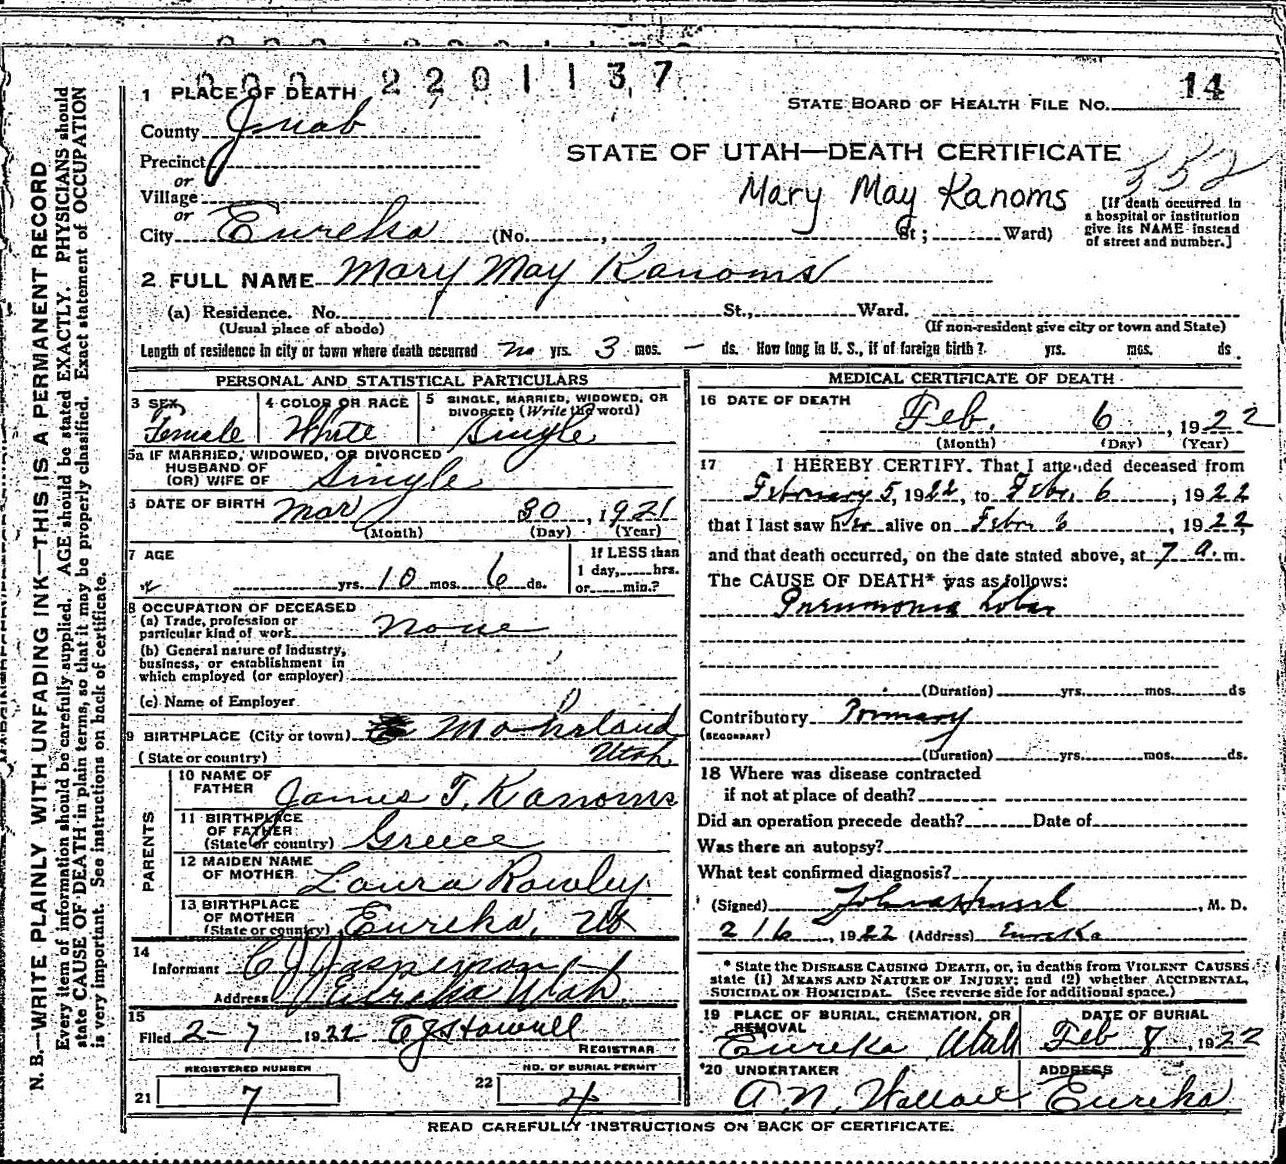 000 2201137
14
1 PLACE OF DEATH
STATE BOARD OF HEALTH FILE No.
County Juab
STATE OF UTAH—DEATH CERTIFICATE
352
Precinct
or
Village
Mary May Kanoms
[If death occurred in
a hospital or institution
give its NAME instead
of street and number.]
or
City Eureka (No. , St; Ward)
2 FULL NAME Mary May Kanoms
(a) Residence. No. St., Ward.
(Usual place of abode) (If non-resident give city or town and State)
Length of residence in city or town where death occurred no yrs. 3 mos. – ds. How long in U. S., if of foreign birth? yrs. mos. ds.
PERSONAL AND STATISTICAL PARTICULARS
3 SEX
Female
4 COLOR OR RACE
White
5 SINGLE, MARRIED, WIDOWED, OR
DIVORCED (Write the word)
Single
5a IF MARRIED, WIDOWED, OR DIVORCED
HUSBAND OF
(OR) WIFE OF Single
6 DATE OF BIRTH Mar 30, 1921
(Month) (Day) (Year)
7 AGE
yrs. 10 mos. 6 ds.
If LESS than
1 day, hrs.
or min.?
8 OCCUPATION OF DECEASED
(a) Trade, profession or
particular kind of work None
(b) General nature of industry,
business, or establishment in
which employed (or employer)
(c) Name of Employer
9 BIRTHPLACE (City or town) Mohrland
(State or country) Utah
PARENTS
10 NAME OF
FATHER James T. Kanoms
11 BIRTHPLACE
OF FATHER
(State or country) Greece
12 MAIDEN NAME
OF MOTHER Laura Rowley
13 BIRTHPLACE
OF MOTHER
(State or country) Eureka, Ut
14
Informant C J Jasperson
Address Eureka Utah
15
Filed 2-7 1922 E J Howell
REGISTRAR
REGISTERED NUMBER
21 7
NO. OF BURIAL PERMIT
22 4
MEDICAL CERTIFICATE OF DEATH
16 DATE OF DEATH
Feb. 6, 1922
(Month) (Day) (Year)
17 I HEREBY CERTIFY. That I attended deceased from
February 5, 1922, to Febr. 6, 1922
that I last saw her alive on Febr 6, 1922,
and that death occurred, on the date stated above, at 7 a.m.
The CAUSE OF DEATH* was as follows:
Pneumonia Lobar
(Duration) yrs. mos. ds
Contributory Primary
(SECONDARY)
(Duration) yrs. mos. ds.
18 Where was disease contracted
if not at place of death?
Did an operation precede death? Date of
Was there an autopsy?
What test confirmed diagnosis?
(Signed) , M. D.
2/6, 1922 (Address) Eureka
* State the DISEASE CAUSING DEATH, or, in deaths from VIOLENT CAUSES
state (1) MEANS AND NATURE OF INJURY; and (2) whether ACCIDENTAL,
SUICIDAL OR HOMICIDAL. (See reverse side for additional space.)
19 PLACE OF BURIAL, CREMATION, OR
REMOVAL
Eureka Utah
DATE OF BURIAL
Feb 8, 1922
20 UNDERTAKER
A. N. Wallace
ADDRESS
Eureka
READ CAREFULLY INSTRUCTIONS ON BACK OF CERTIFICATE.
N. B.—WRITE PLAINLY WITH UNFADING INK—THIS IS A PERMANENT RECORD
Every item of information should be carefully supplied. AGE should be stated EXACTLY. PHYSICIANS should
state CAUSE OF DEATH in plain terms, so that it may be properly classified. Exact statement of OCCUPATION
is very important. See instructions on back of certificate.